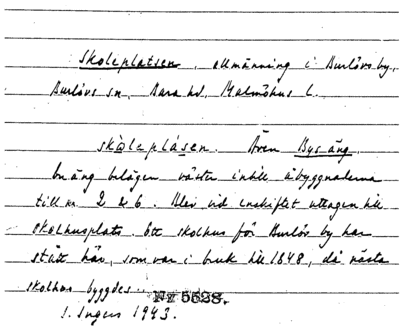 Skoleplatsen, allmänning i Burlövs by,
Burlövs sn, Bara hd, Malmöhus l.
skòleplásen. Även Bys äng,
en äng belägen väster intill åbyggnaderna
till nr 2 & 6. Blev vid enskiftet uttagen till
skolhusplats. Ett skolhus för Burlöv by har
stått här, som var i bruk till 1848, då nästa
skolhus byggdes.
Nz 5628.
I. Ingers 1943.